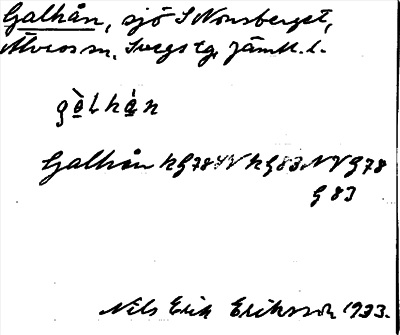 Galhån, sjö S Nonsberget,
Älvros sn, Svegs tg, Jämtl. l.
gàlhán
Galhån KG78SV KG83NV G78
G 83
Nils Erik Eriksson 1933.